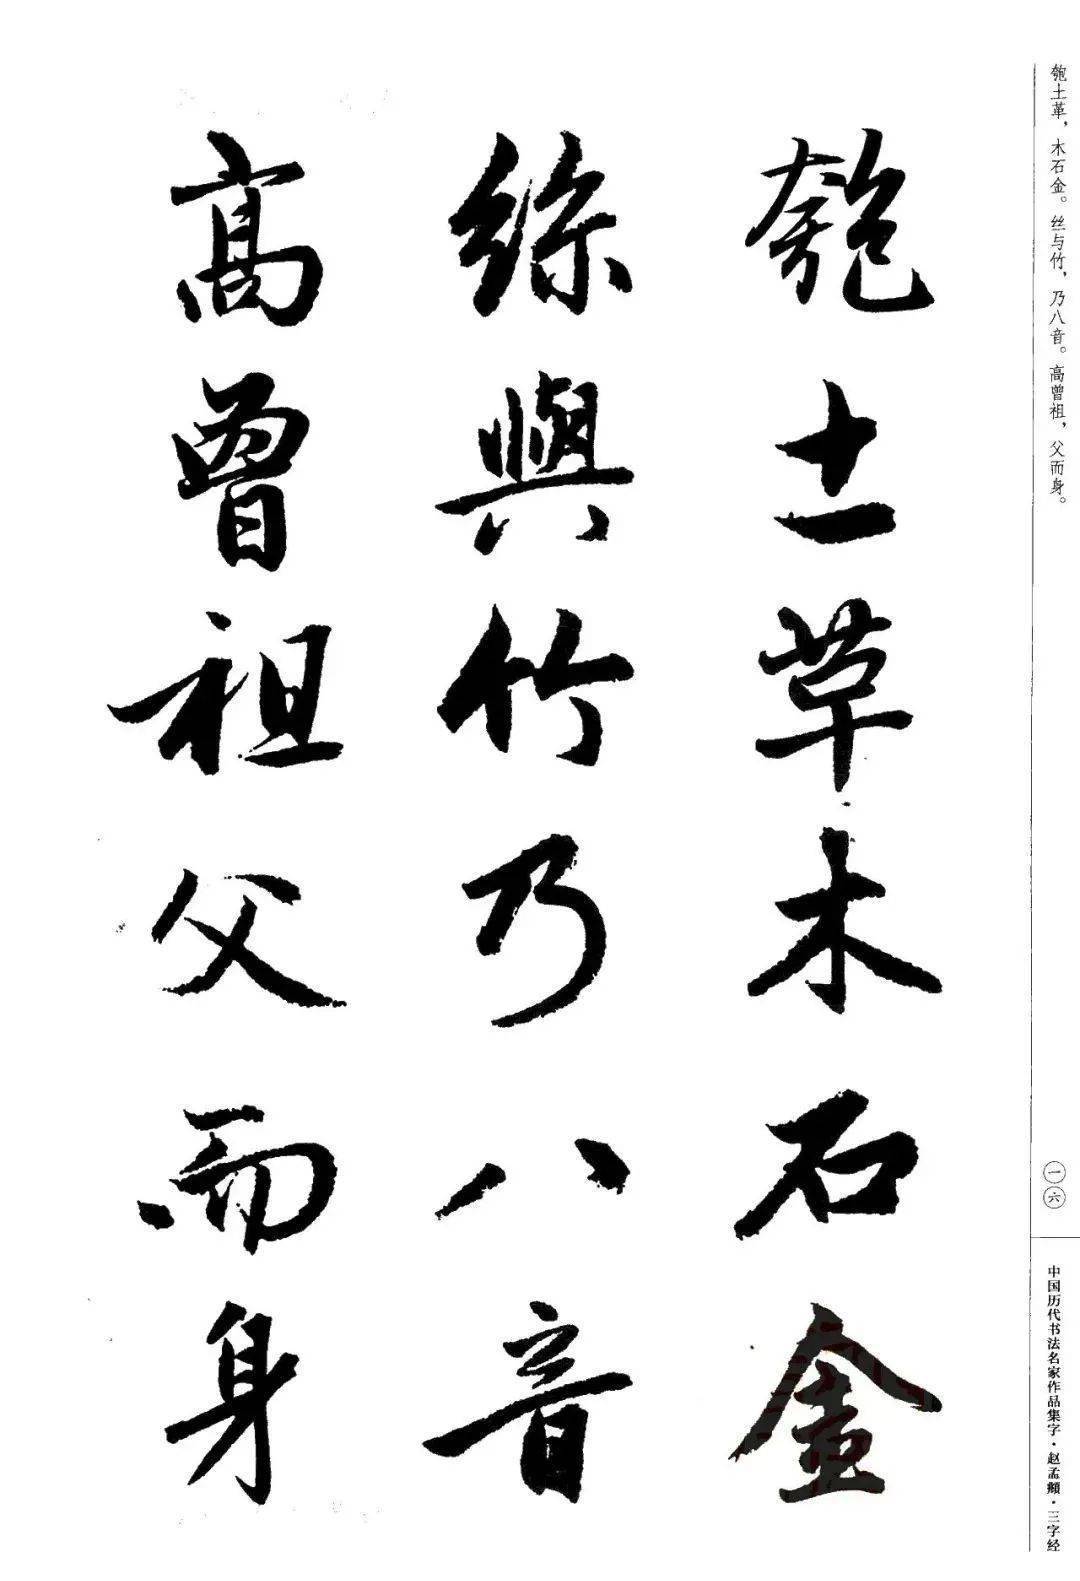 匏土革，木石金。丝与竹，乃八音。高曾祖，父而身。
一六
中国历代书法名家作品集字·赵孟頫·三字经
匏土革木石金
絲與竹乃八音
高曾祖父而身